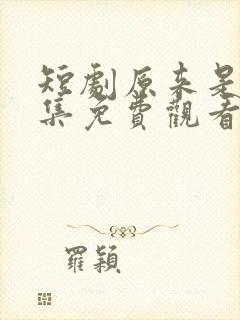 短劇原來是
集免費觀看
羅穎